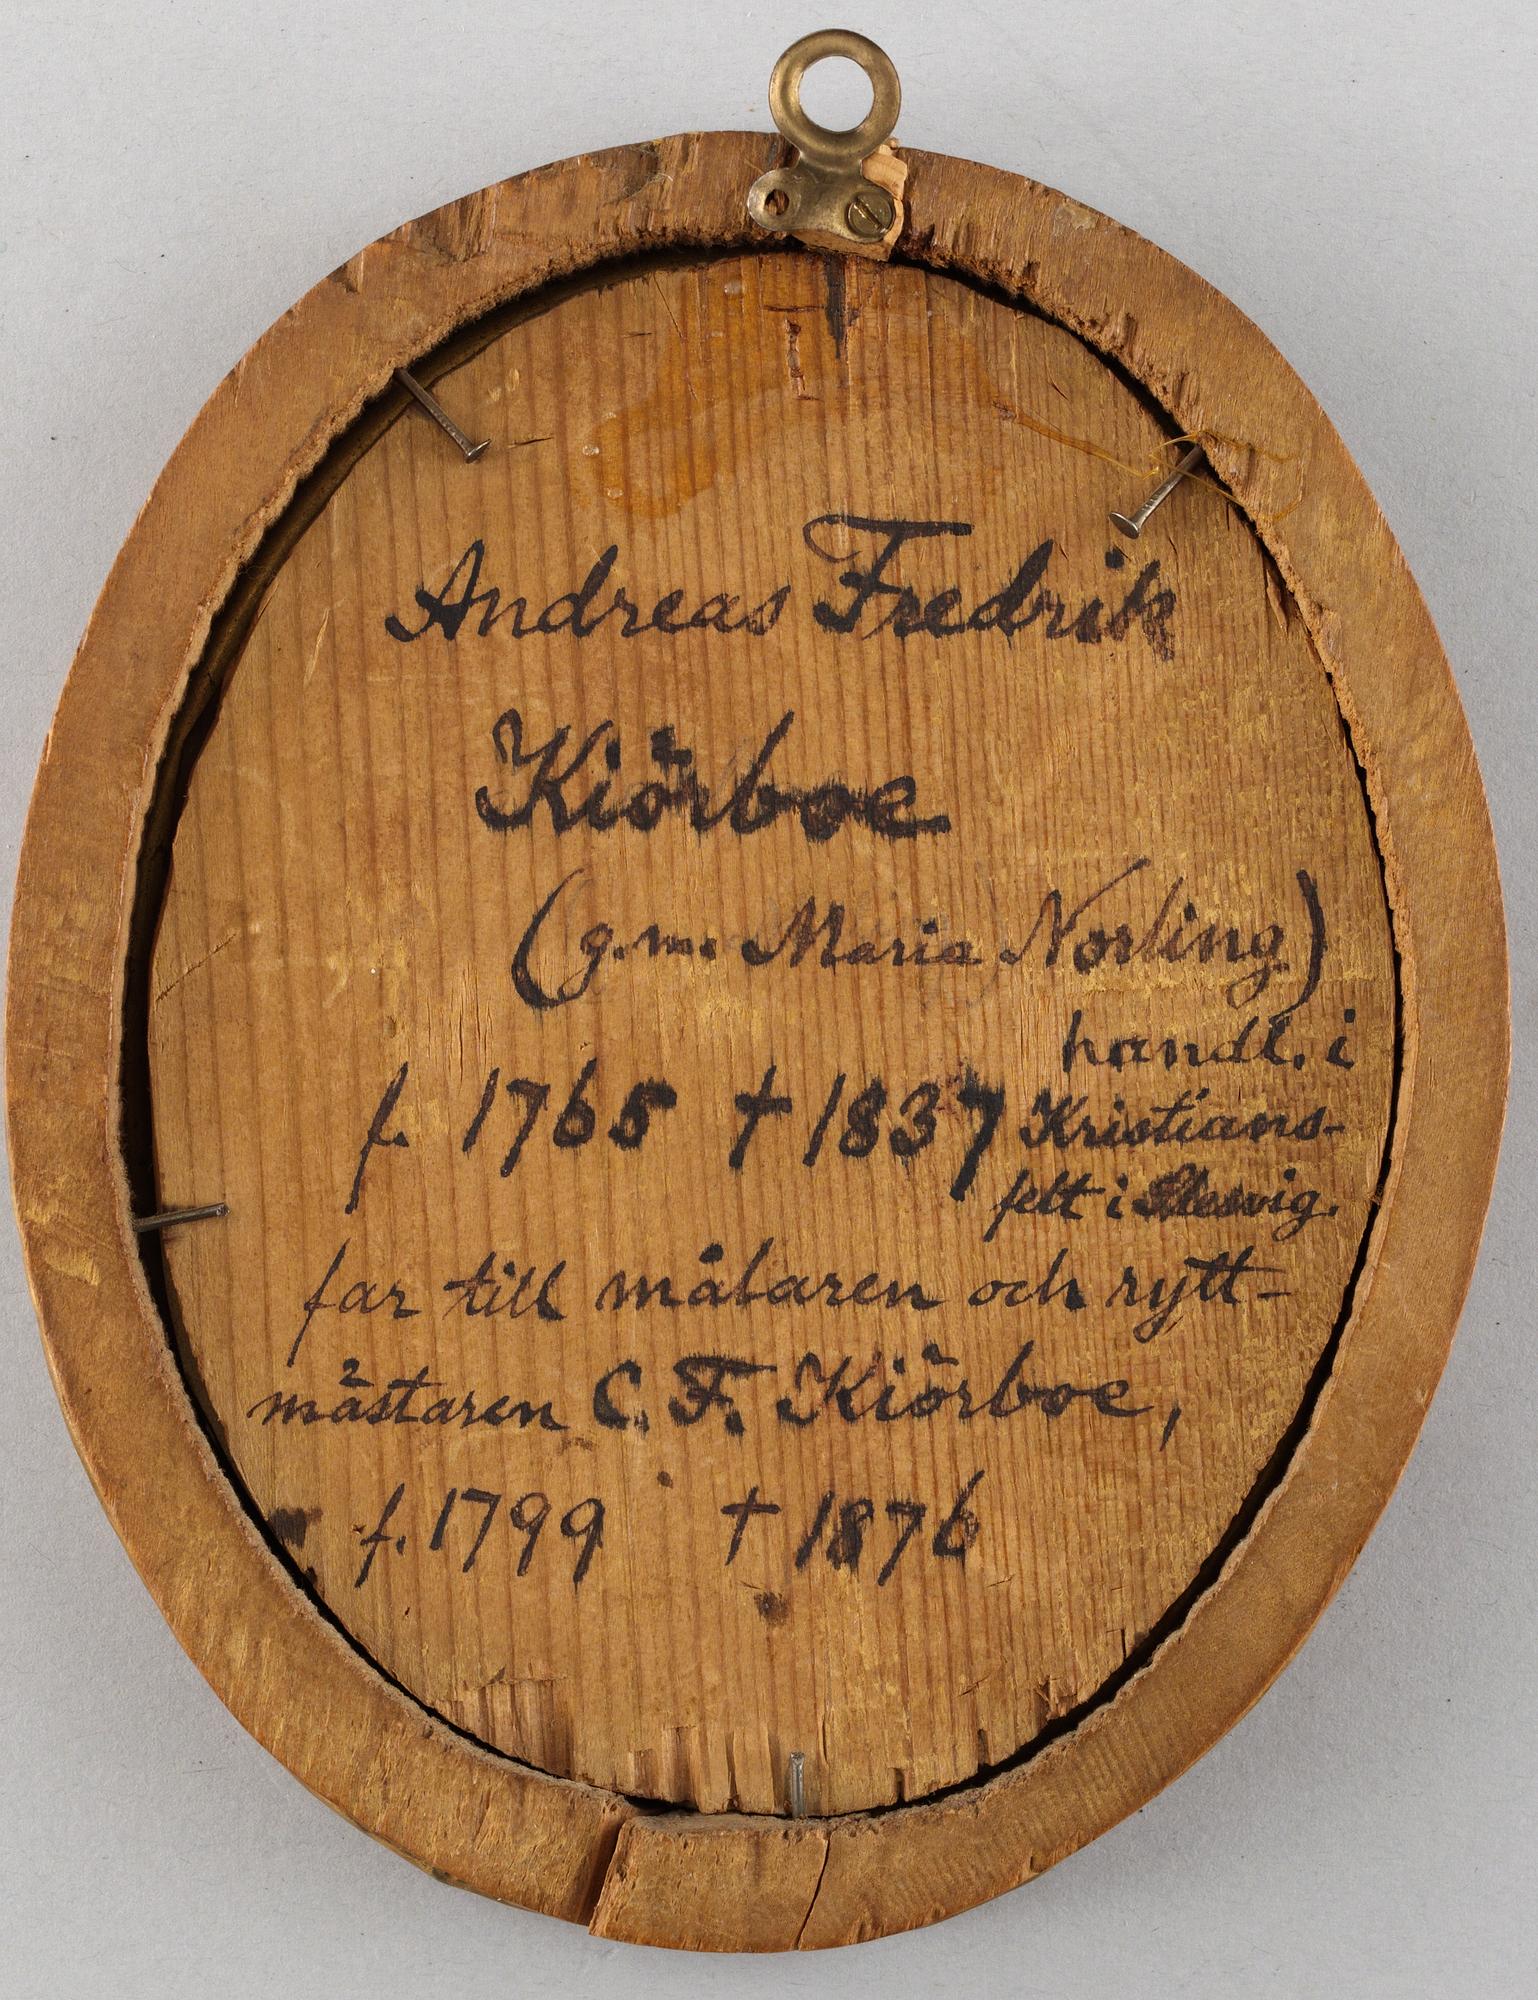 Andreas Fredrik
Kiörboe
(g.m. Maria Norling)
f. 1765 † 1837
handl. i
Kristians-
felt i Slesvig.
far till målaren och rytt-
mästaren C. F. Kiörboe,
f. 1799 † 1876